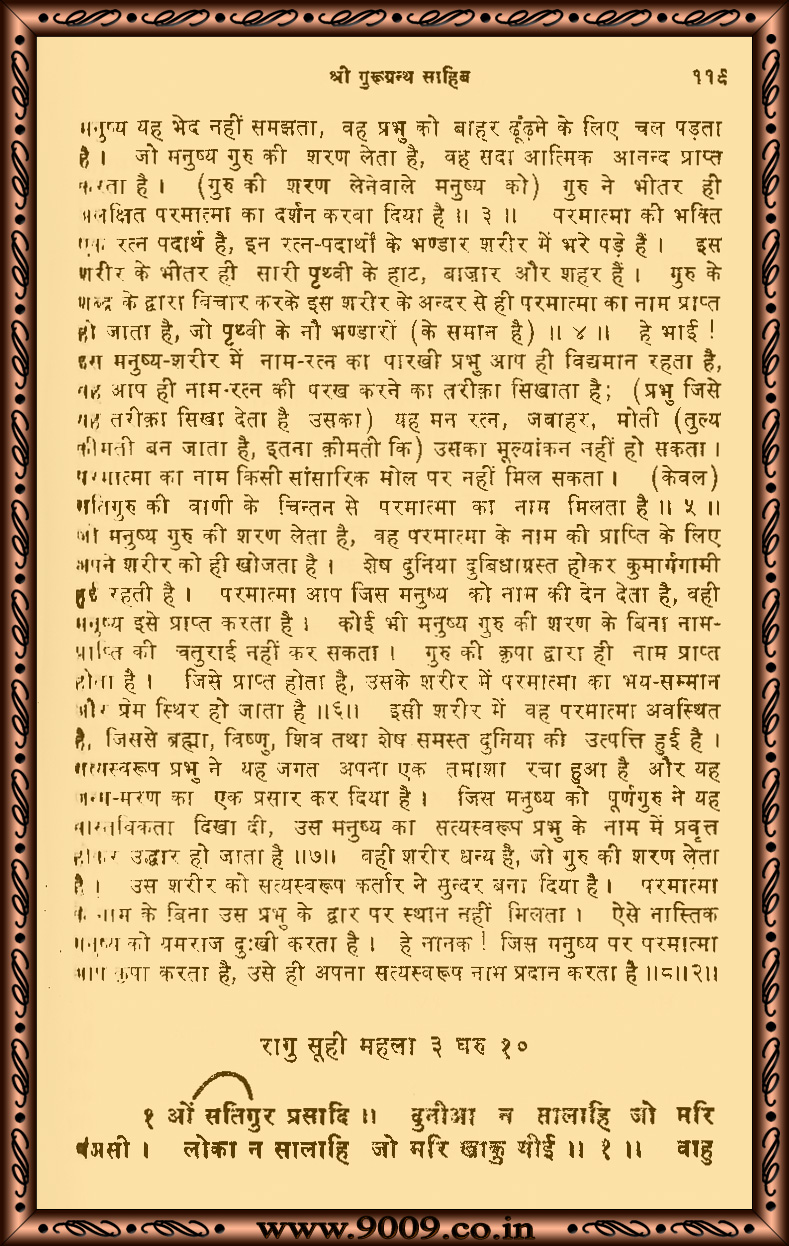 श्री गुरूग्रन्थ साहिब ११९
मनुष्य यह भेद नहीं समझता, वह प्रभु को बाहर ढूंढ़ने के लिए चल पड़ता
है। जो मनुष्य गुरु की शरण लेता है, वह सदा आत्मिक आनन्द प्राप्त
करता है। (गुरु की शरण लेनेवाले मनुष्य को) गुरु ने भीतर ही
अलक्षित परमात्मा का दर्शन करवा दिया है॥ ३ ॥ परमात्मा की भक्ति
एक रत्न पदार्थ है, इन रत्न-पदार्थों के भण्डार शरीर में भरे पड़े हैं। इस
शरीर के भीतर ही सारी पृथ्वी के हाट, बाज़ार और शहर हैं। गुरु के
शब्द के द्वारा विचार करके इस शरीर के अन्दर से ही परमात्मा का नाम प्राप्त
हो जाता है, जो पृथ्वी के नौ भण्डारों (के समान है) ॥ ४ ॥ हे भाई !
इस मनुष्य-शरीर में नाम-रत्न का पारखी प्रभु आप ही विद्यमान रहता है,
वह आप ही नाम-रत्न की परख करने का तरीक़ा सिखाता है; (प्रभु जिसे
यह तरीक़ा सिखा देता है उसका) यह मन रत्न, जवाहर, मोती (तुल्य
क़ीमती बन जाता है, इतना क़ीमती कि) उसका मूल्यांकन नहीं हो सकता।
परमात्मा का नाम किसी सांसारिक मोल पर नहीं मिल सकता। (केवल)
सतिगुरु की वाणी के चिन्तन से परमात्मा का नाम मिलता है॥ ५ ॥
जो मनुष्य गुरु की शरण लेता है, वह परमात्मा के नाम की प्राप्ति के लिए
अपने शरीर को ही खोजता है। शेष दुनिया दुबिधाग्रस्त होकर कुमार्गगामी
हुई रहती है। परमात्मा आप जिस मनुष्य को नाम की देन देता है, वही
मनुष्य इसे प्राप्त करता है। कोई भी मनुष्य गुरु की शरण के बिना नाम-
प्राप्ति की चतुराई नहीं कर सकता। गुरु की कृपा द्वारा ही नाम प्राप्त
होता है। जिसे प्राप्त होता है, उसके शरीर में परमात्मा का भय-सम्मान
और प्रेम स्थिर हो जाता है॥६॥ इसी शरीर में वह परमात्मा अवस्थित
है, जिससे ब्रह्मा, विष्णु, शिव तथा शेष समस्त दुनिया की उत्पत्ति हुई है।
सत्यस्वरूप प्रभु ने यह जगत अपना एक तमाशा रचा हुआ है और यह
जन्म-मरण का एक प्रसार कर दिया है। जिस मनुष्य को पूर्णगुरु ने यह
वास्तविकता दिखा दी, उस मनुष्य का सत्यस्वरूप प्रभु के नाम में प्रवृत्त
होकर उद्धार हो जाता है॥७॥ वही शरीर धन्य है, जो गुरु की शरण लेता
है। उस शरीर को सत्यस्वरूप कर्तार ने सुन्दर बना दिया है। परमात्मा
के नाम के बिना उस प्रभु के द्वार पर स्थान नहीं मिलता। ऐसे नास्तिक
मनुष्य को यमराज दुःखी करता है। हे नानक ! जिस मनुष्य पर परमात्मा
आप कृपा करता है, उसे ही अपना सत्यस्वरूप नाम प्रदान करता है॥८॥२॥
रागु सूही महला ३ घरु १०
१ ओं सतिगुर प्रसादि॥ दुनीआ न सालाहि जो मरि
वंञसी। लोका न सालाहि जो मरि खाकु थीई॥ १ ॥ वाहु
www.9009.co.in